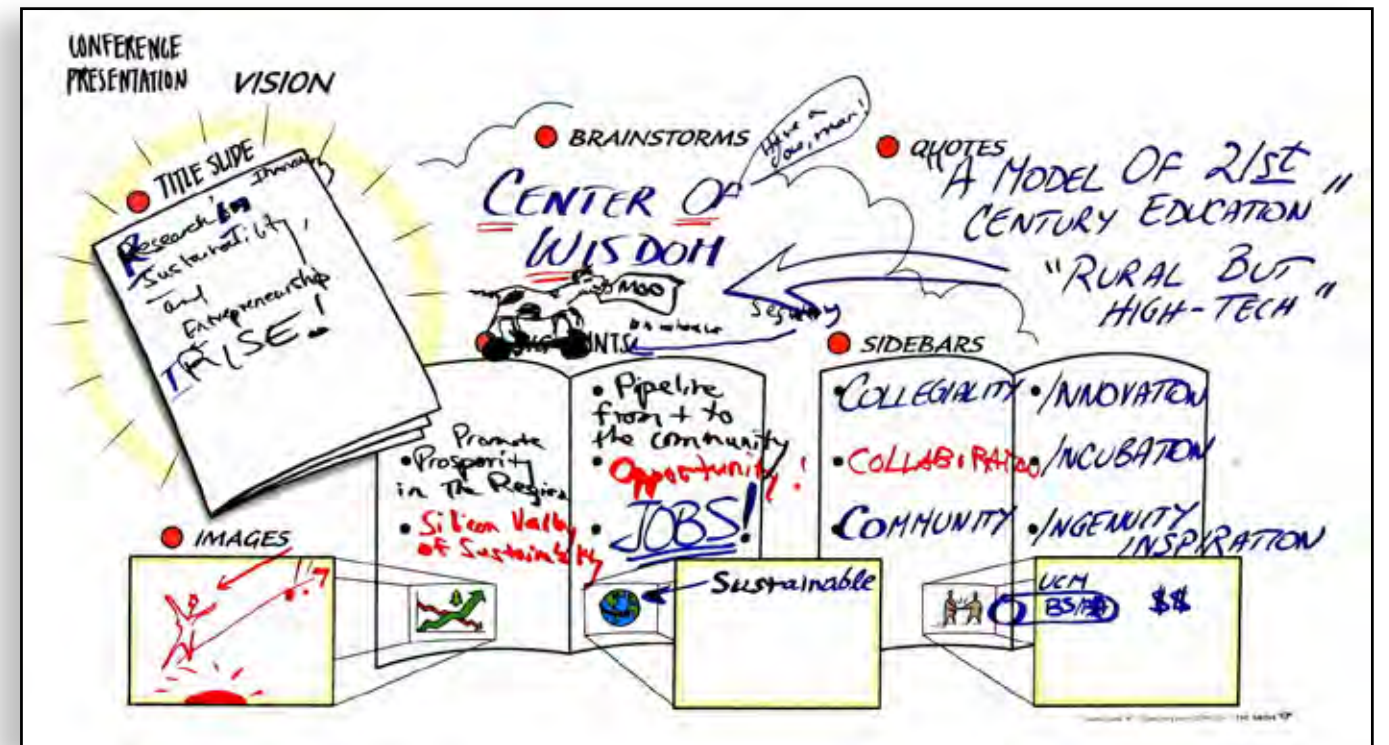 CONFERENCE
PRESENTATION
VISION
TITLE SLIDE
Research in
Sustainability
and
Entrepreneurship
IRISE!
BRAINSTORMS
Have a
cow, man!
CENTER OF
WISDOM
MOO
QUOTES
"A MODEL OF 21st
CENTURY EDUCATION"
"RURAL BUT
HIGH-TECH"
Promote
• Prosperity
in the Region
• Silicon Valley
of Sustainability
• Pipeline
from + to
the community
• Opportunity!
• JOBS!
SIDEBARS
• COLLEGIALITY
• COLLABORATION
• COMMUNITY
• INNOVATION
• INCUBATION
• INGENUITY
INSPIRATION
IMAGES
Sustainable
UCM
$$